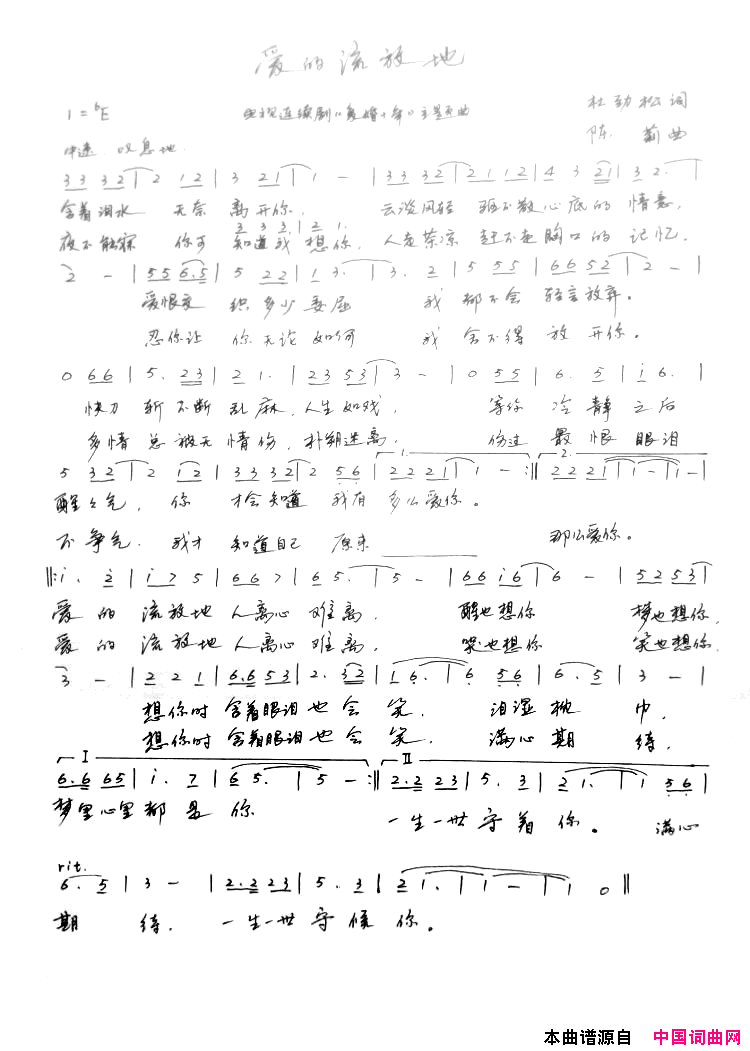 爱的流放地
1=♭E 电视连续剧《复婚十年》主题曲 杜劲松词
陈 莉曲
中速 叹息地
3 3 3 2 | 2 1 2 | 3 2 1 | 1 - | 3 3 3 2 | 2 1 1 2 | 4 3 2 1 | 3 2. |
含着泪水 无奈 离开你， 云淡风轻 驱不散心底的情意，
3 3 3. | 2 1.
夜不能寐 你可 知道我想你， 人走茶凉 赶不走胸口的记忆，
2 - | 5 5 6.5 | 5 2 2 | 1 3. | 3. 2 | 5 5 5 | 6 6 5 2 | 2 - |
爱恨交 织多少委屈 我都不会轻言放弃。
忍你让 你无论如何 我舍不得放开你。
0 6 6 | 5. 2 3 | 2 1. | 2 3 5 3 | 3 - | 0 5 5 | 6. 5 | i 6. |
快刀 斩不断乱麻，人生如戏， 等你冷静之后
多情总被无情伤，扑朔迷离， 伤过最恨眼泪
5 3 2 | 2 1 2 | 3 3 3 3 2 | 2 5 6 | 1. 2 2 2 1 | 1 - :|| 2. 2 2 2 1 | 1 - | 1 - |
醒醒气， 你 才会知道 我有多么爱你。
不争气， 我才知道自己 原来 那么爱你。
||: i. 2 | i 7 5 | 6 6 7 | 6 5. | 5 - | 6 6 i 6 | 6 - | 5 2 5 3 |
爱的流放地人离心难离， 醒也想你 梦也想你，
爱的流放地人离心难离， 哭也想你 笑也想你，
3 - | 2 2 1 | 6.6 5 3 | 2. 3 2 | 1 6. | 6 5 6 | 6. 5 | 3 - |
想你时含着眼泪也会笑， 泪湿枕巾，
想你时含着眼泪也会笑， 满心期待，
I
6.6 6 5 | i. 7 | 6 5. | 5 - :|| II 2.2 2 3 | 5. 3 | 2 1. | 1 5 6 |
梦里心里都是你 一生一世守着你。 满心
rit.
6. 5 | 3 - | 2.2 2 3 | 5. 3 | 2 1. | 1 - | 1 0 ||
期待，一生一世守候你。
本曲谱源自 中国词曲网